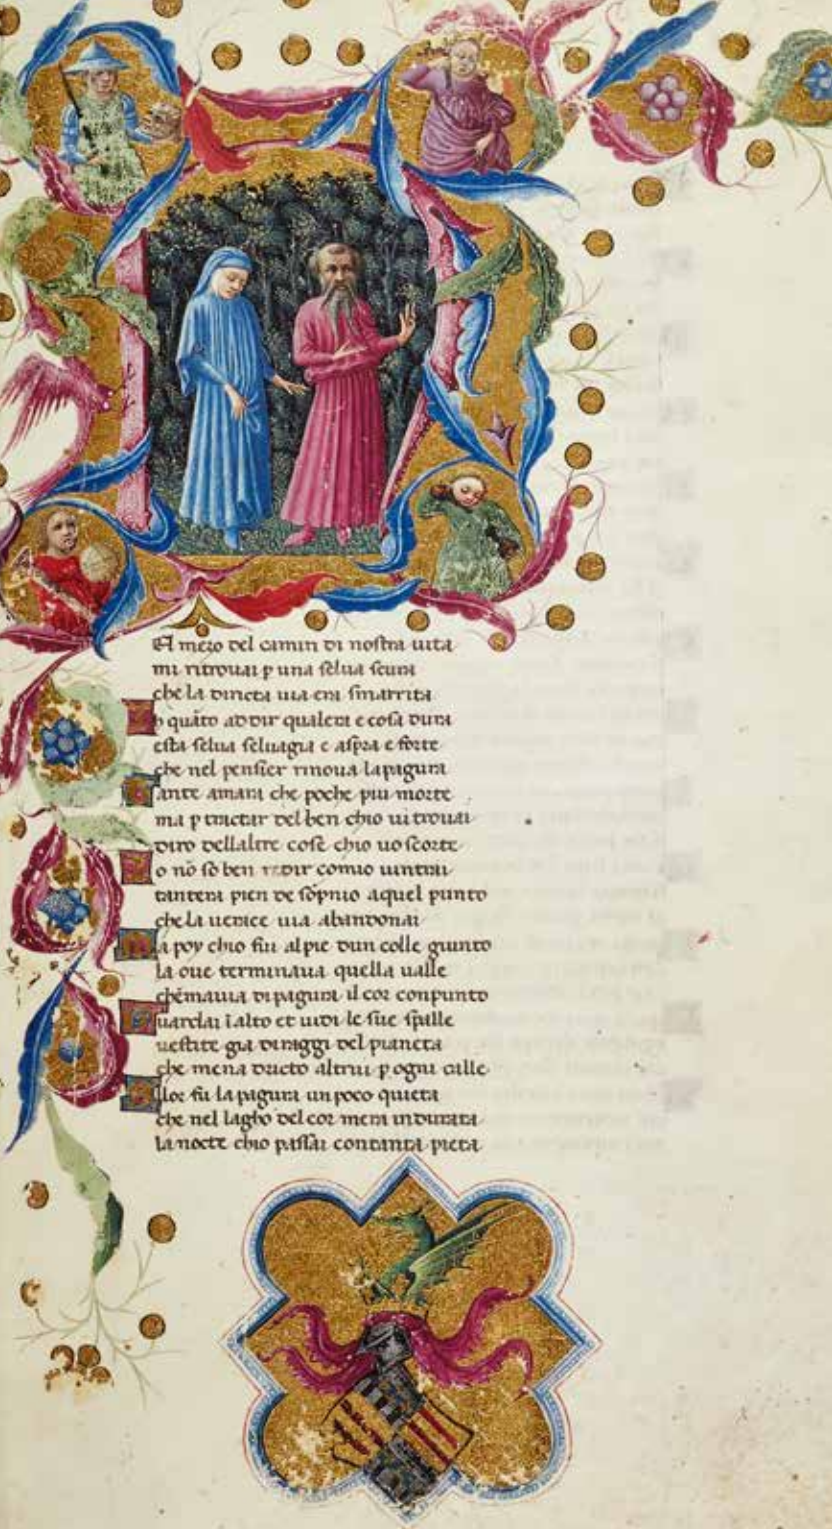 El mezo del camin di nostra uita
mi ritrouai p una selua scura
che la diricta uia era smarrita
h quāto ad dir qualera e cosa dura
esta selua seluagia e aspra e forte
che nel pensier rinoua la pagura
ante amara che poche piu morte
ma p tractar del ben chio ui trouai
diro dellaltre cose chio uo scorte
o nō so ben redir comio uintrai
tantera pien de sopnio a quel punto
che la uerace uia abandonai
a poy chio fui al pie dun colle giunto
la oue terminaua quella ualle
che mauia di pagura il cor conpunto
uardai ī alto et uidi le sue spalle
uestite gia di raggi del pianeta
che mena dricto altrui p ogni calle
llor fu la pagura un poco quieta
che nel lagho del cor mera indurata
la nocte chio passai con tanta pieta